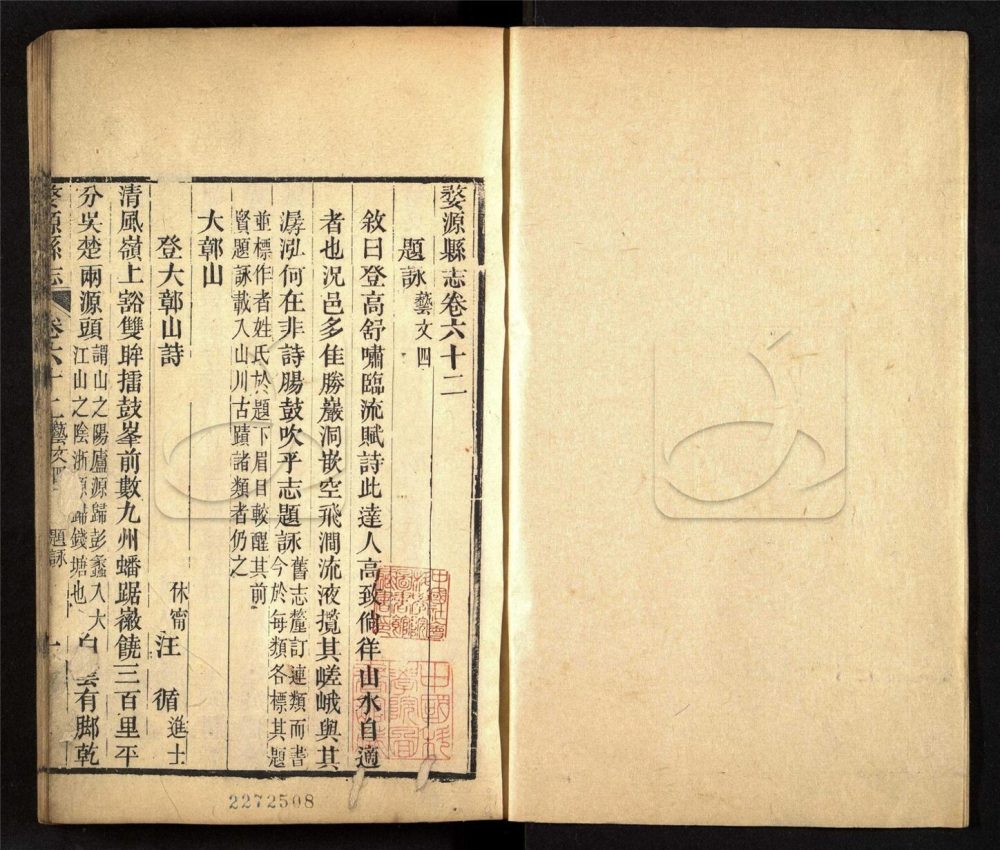 婺源縣志卷六十二
題詠 藝文四
敘曰登高舒嘯臨流賦詩此達人高致倘徉山水自適
者也況邑多佳勝巖洞嵌空飛澗流液攬其嵯峨與其
潺泓何在非詩腸鼓吹乎志題詠 舊志釐訂連類而書
今於每類各標其題
並標作者姓氏於題下眉目較醒其前
賢題詠載入山川古蹟諸類者仍之
大鄣山
登大鄣山詩 休甯 汪 循 進士
清風嶺上豁雙眸擂鼓峯前數九州蟠踞徽饒三百里平
分吳楚兩源頭 謂山之陽廬源歸彭蠡入大
江山之陰浙源歸錢塘也 雲有脚乾
婺源縣志 卷六十二 藝文四 題詠 一
2272508